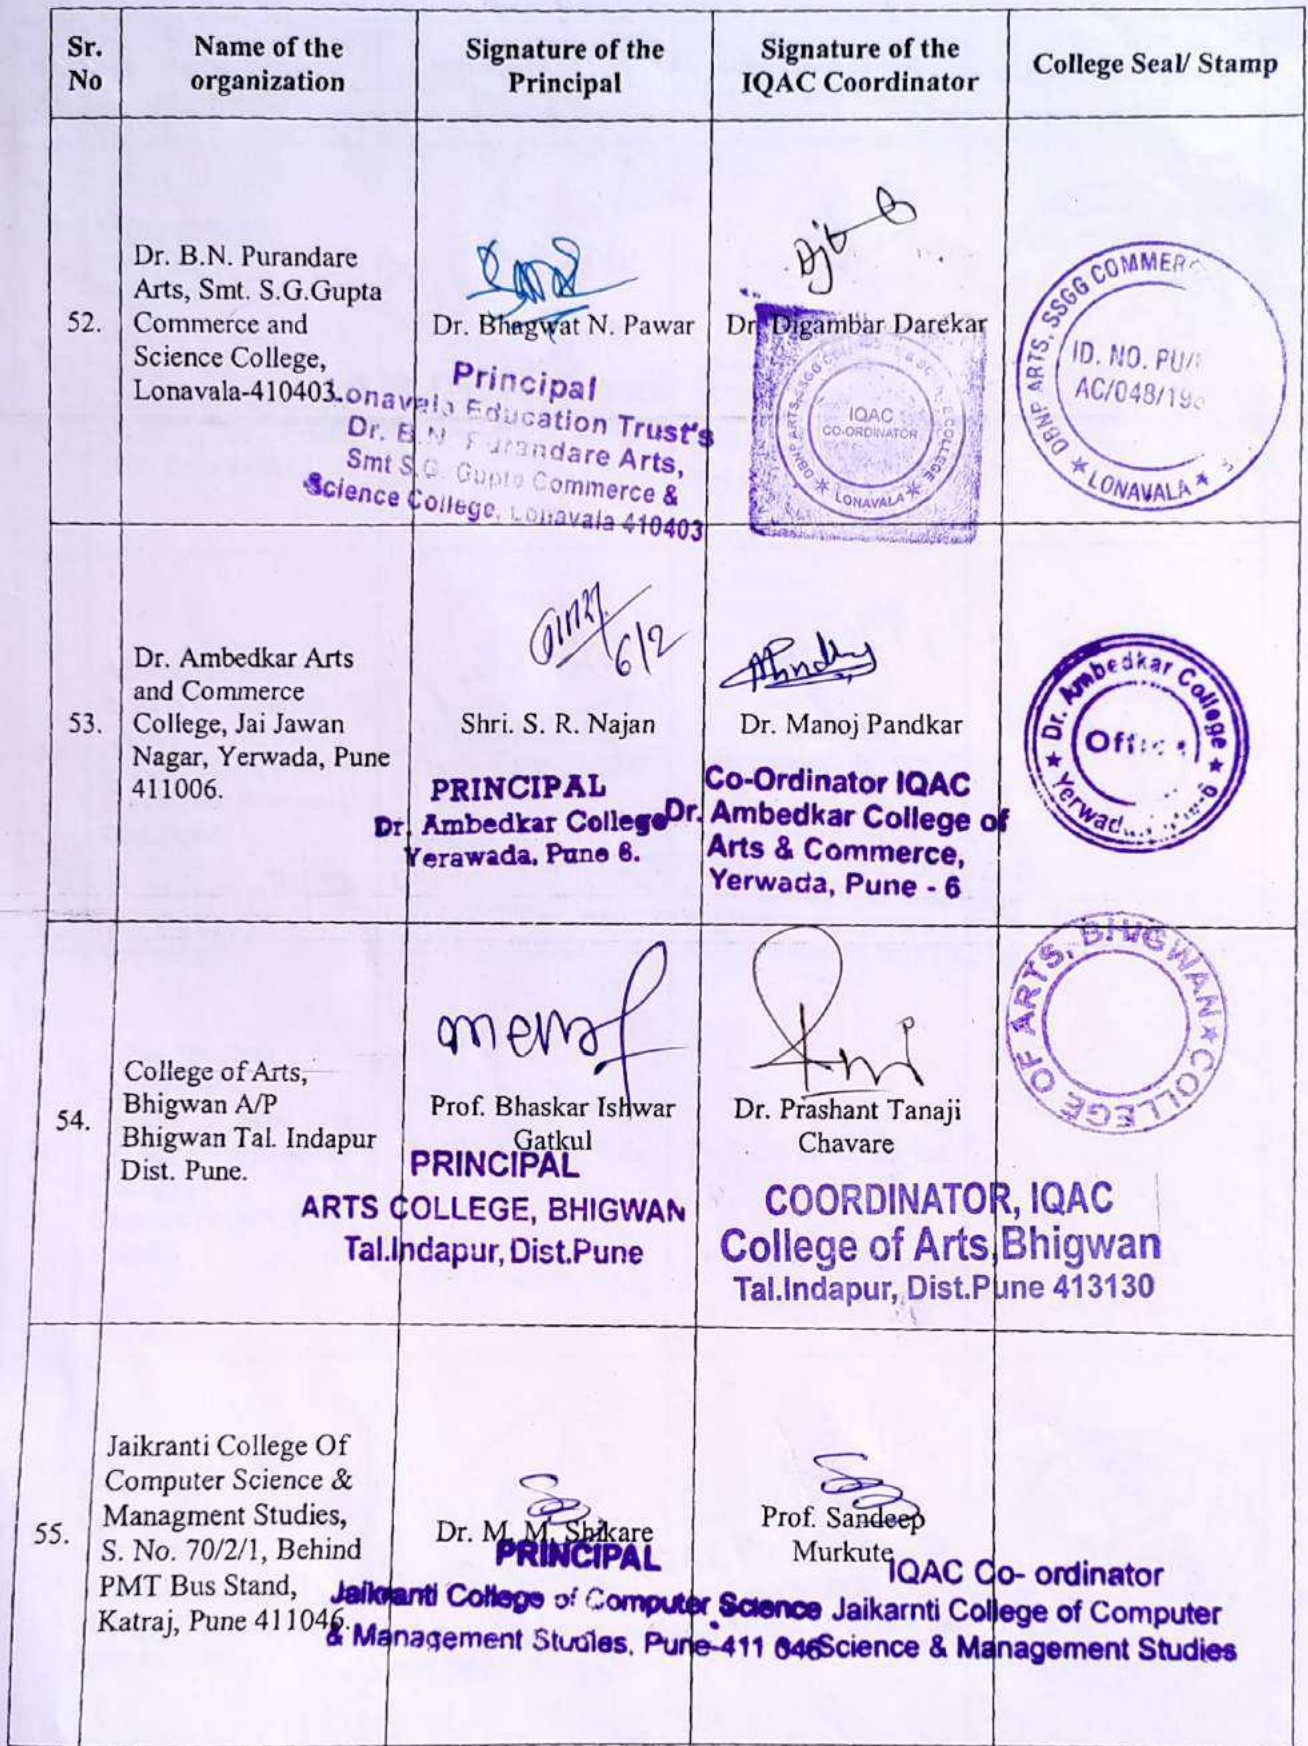 Sr. No
Name of the organization
Signature of the Principal
Signature of the IQAC Coordinator
College Seal/ Stamp
52.
Dr. B.N. Purandare
Arts, Smt. S.G.Gupta
Commerce and
Science College,
Lonavala-410403.
Dr. Bhagwat N. Pawar
Principal
Lonavala Education Trust's
Dr. B.N. Purandare Arts,
Smt S.G. Gupta Commerce &
Science College, Lonavala 410403
Dr. Digambar Darekar
IQAC
CO-ORDINATOR
DBNP ARTS, SSGG COLLEGE
LONAVALA
DBNP ARTS, SSGG COMMER
ID. NO. PU/
AC/048/19
LONAVALA
53.
Dr. Ambedkar Arts
and Commerce
College, Jai Jawan
Nagar, Yerwada, Pune
411006.
6/2
Shri. S. R. Najan
PRINCIPAL
Dr. Ambedkar College
Yerawada, Pune 6.
Dr. Manoj Pandkar
Co-Ordinator IQAC
Dr. Ambedkar College of
Arts & Commerce,
Yerwada, Pune - 6
Dr. Ambedkar College
Office
Yerwad
54.
College of Arts,
Bhigwan A/P
Bhigwan Tal. Indapur
Dist. Pune.
Prof. Bhaskar Ishwar
Gatkul
PRINCIPAL
ARTS COLLEGE, BHIGWAN
Tal.Indapur, Dist.Pune
Dr. Prashant Tanaji
Chavare
COORDINATOR, IQAC
College of Arts,Bhigwan
Tal.Indapur, Dist.Pune 413130
COLLEGE OF ARTS, BHIGWAN
55.
Jaikranti College Of
Computer Science &
Managment Studies,
S. No. 70/2/1, Behind
PMT Bus Stand,
Katraj, Pune 411046.
Dr. M. M. Shikare
PRINCIPAL
Jaikranti College of Computer Science
& Management Studies, Pune-411 046
Prof. Sandeep
Murkute
IQAC Co- ordinator
Jaikarnti College of Computer
Science & Management Studies